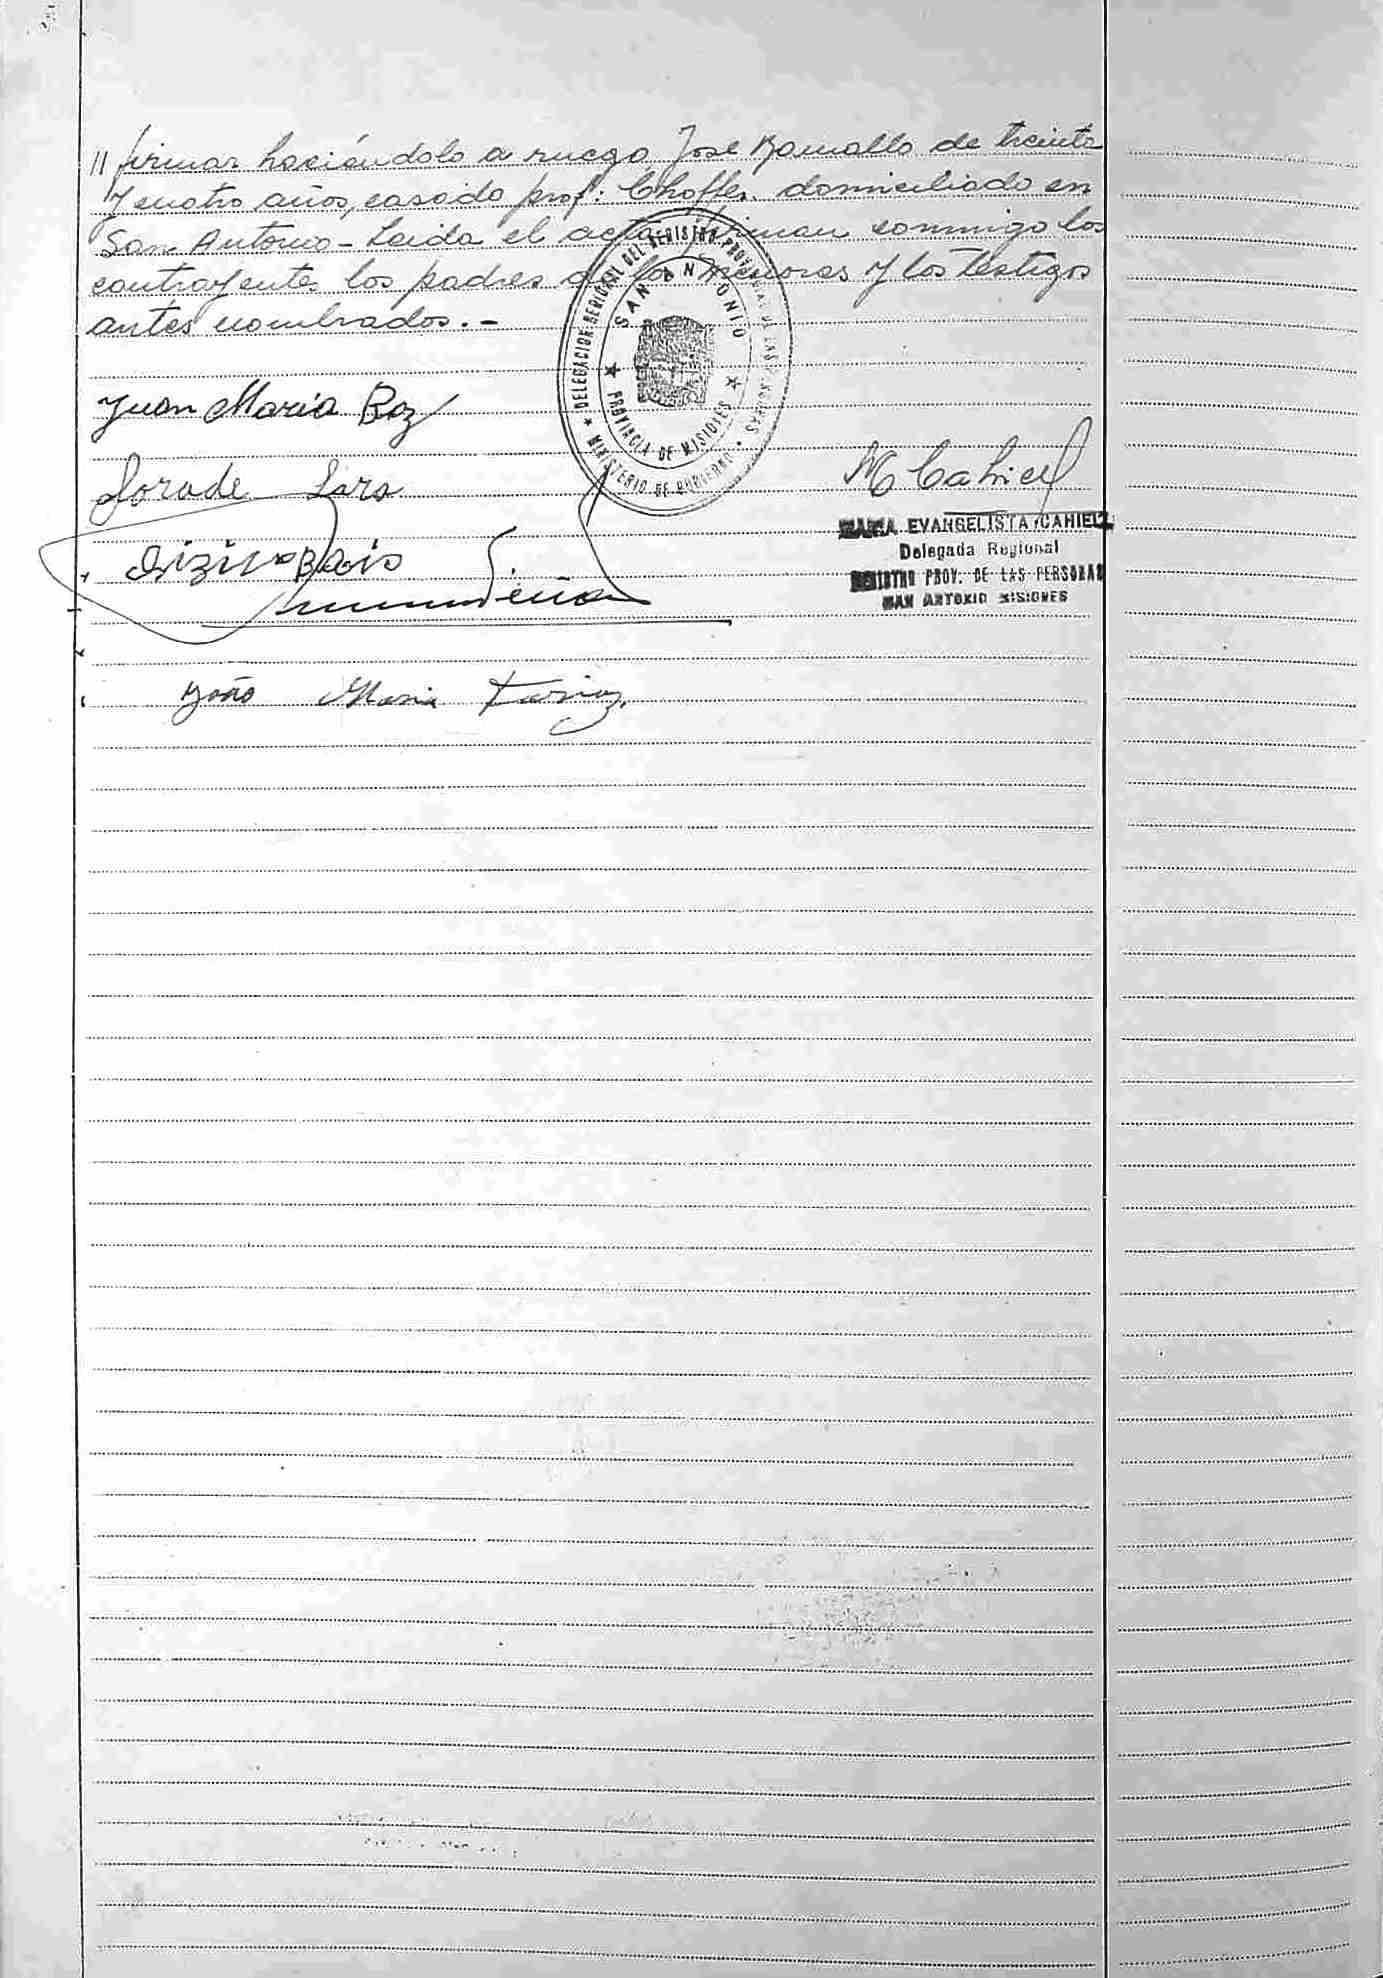 // firmar haciéndolo a ruego José Ramallo de treinta
y cuatro años, casado prof: Choffer. domiciliado en
San Antonio - Leida el acta, firman conmigo los
contrayentes los padres de los menores y los testigos
antes nombrados. -
DELEGACION REGIONAL DEL REGISTRO PROVINCIAL DE LAS PERSONAS
MINISTERIO DE GOBIERNO
SAN ANTONIO
PROVINCIA DE MISIONES
Juan Maria
M Cahiel
MARIA EVANGELISTA CAHIEL
Delegada Regional
REGISTRO PROV. DE LAS PERSONAS
SAN ANTONIO MISIONES
João Maria